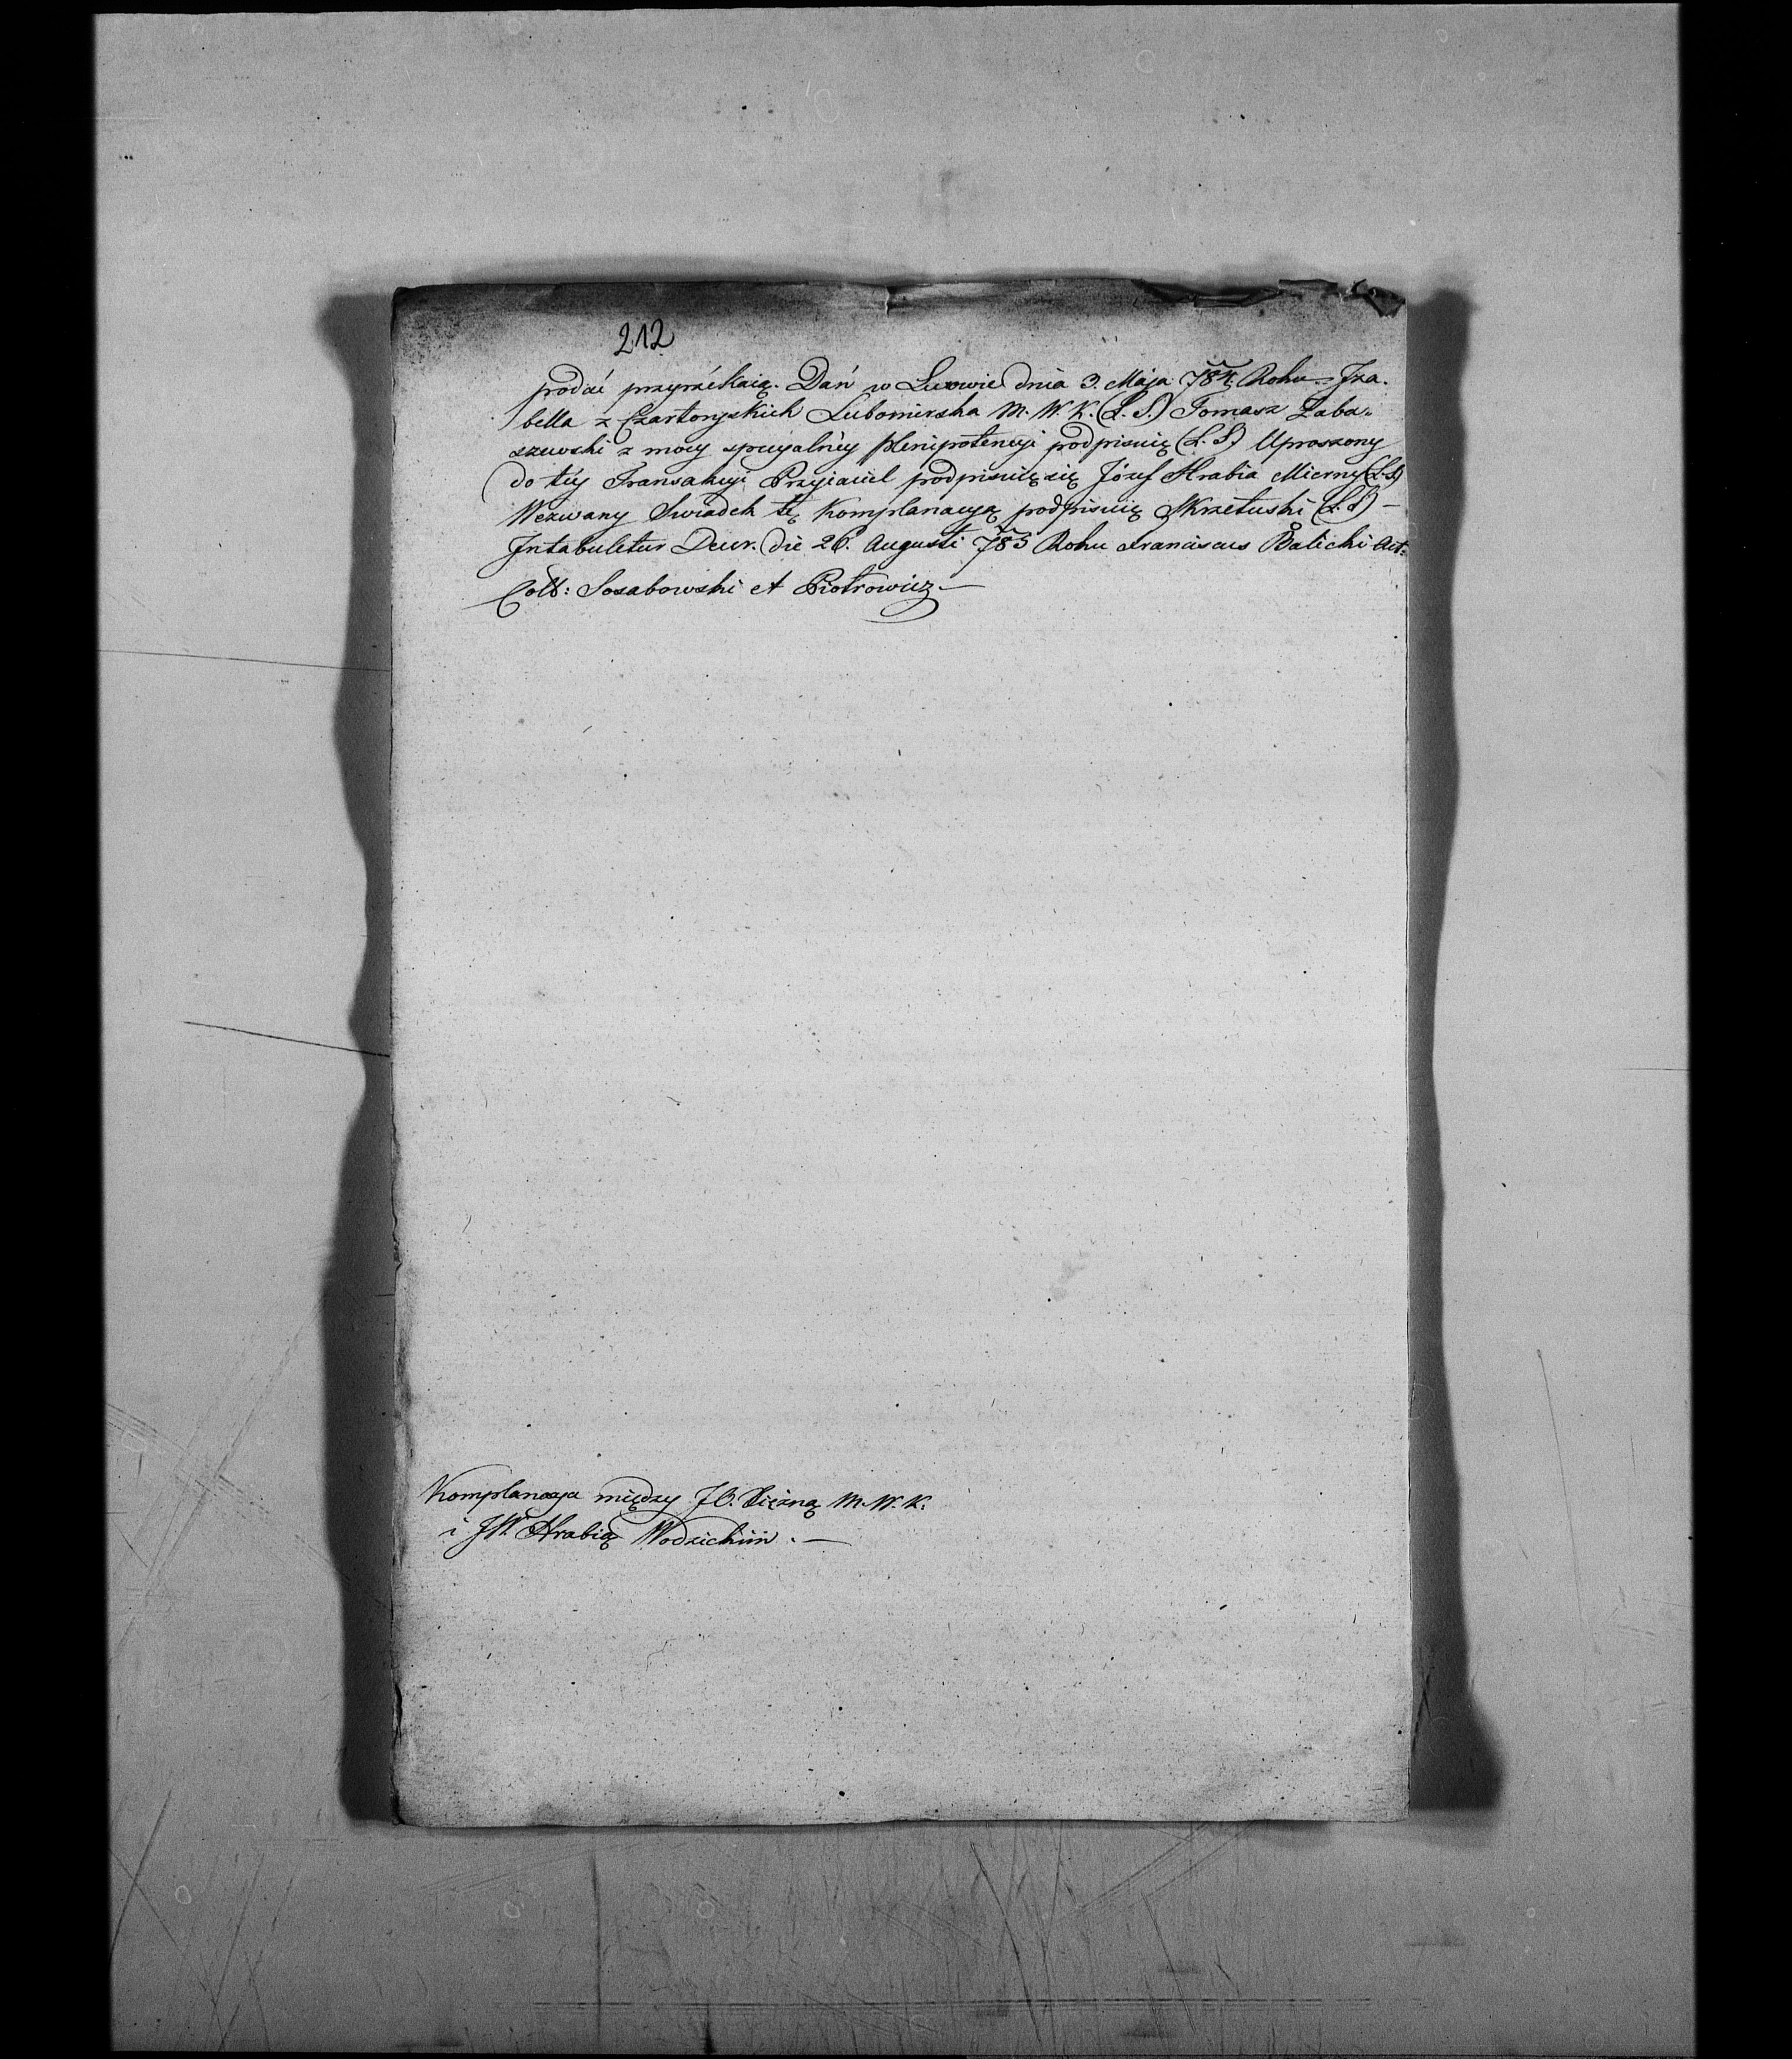 212
podać przyrzékaią. Dań w Lwowie dnia 3. Maja 784. Roku = Iza-
bella z Czartoryskich Lubomirska M. W. K. (L. S.) Tomasz Laba-
szewski z mocy specyalnéy plenipotencyi podpisuię (L. S.) Uproszony
do téy Transakcyi Przyiaciel podpisuię się Józef Hrabia Mierny (L. S.)
Wezwany Swiadek tę Komplanacyą podpisuię Skrzetuski (L. S.) —
Intabuletur Decer. die 26. Augusti 785 Roku Franciscus Balicki Act:
Coll: Sosabowski et Piotrowicz —
Komplanacya między J.O. Xiężną M. W. K.
i JW. Hrabią Wodzickim . —